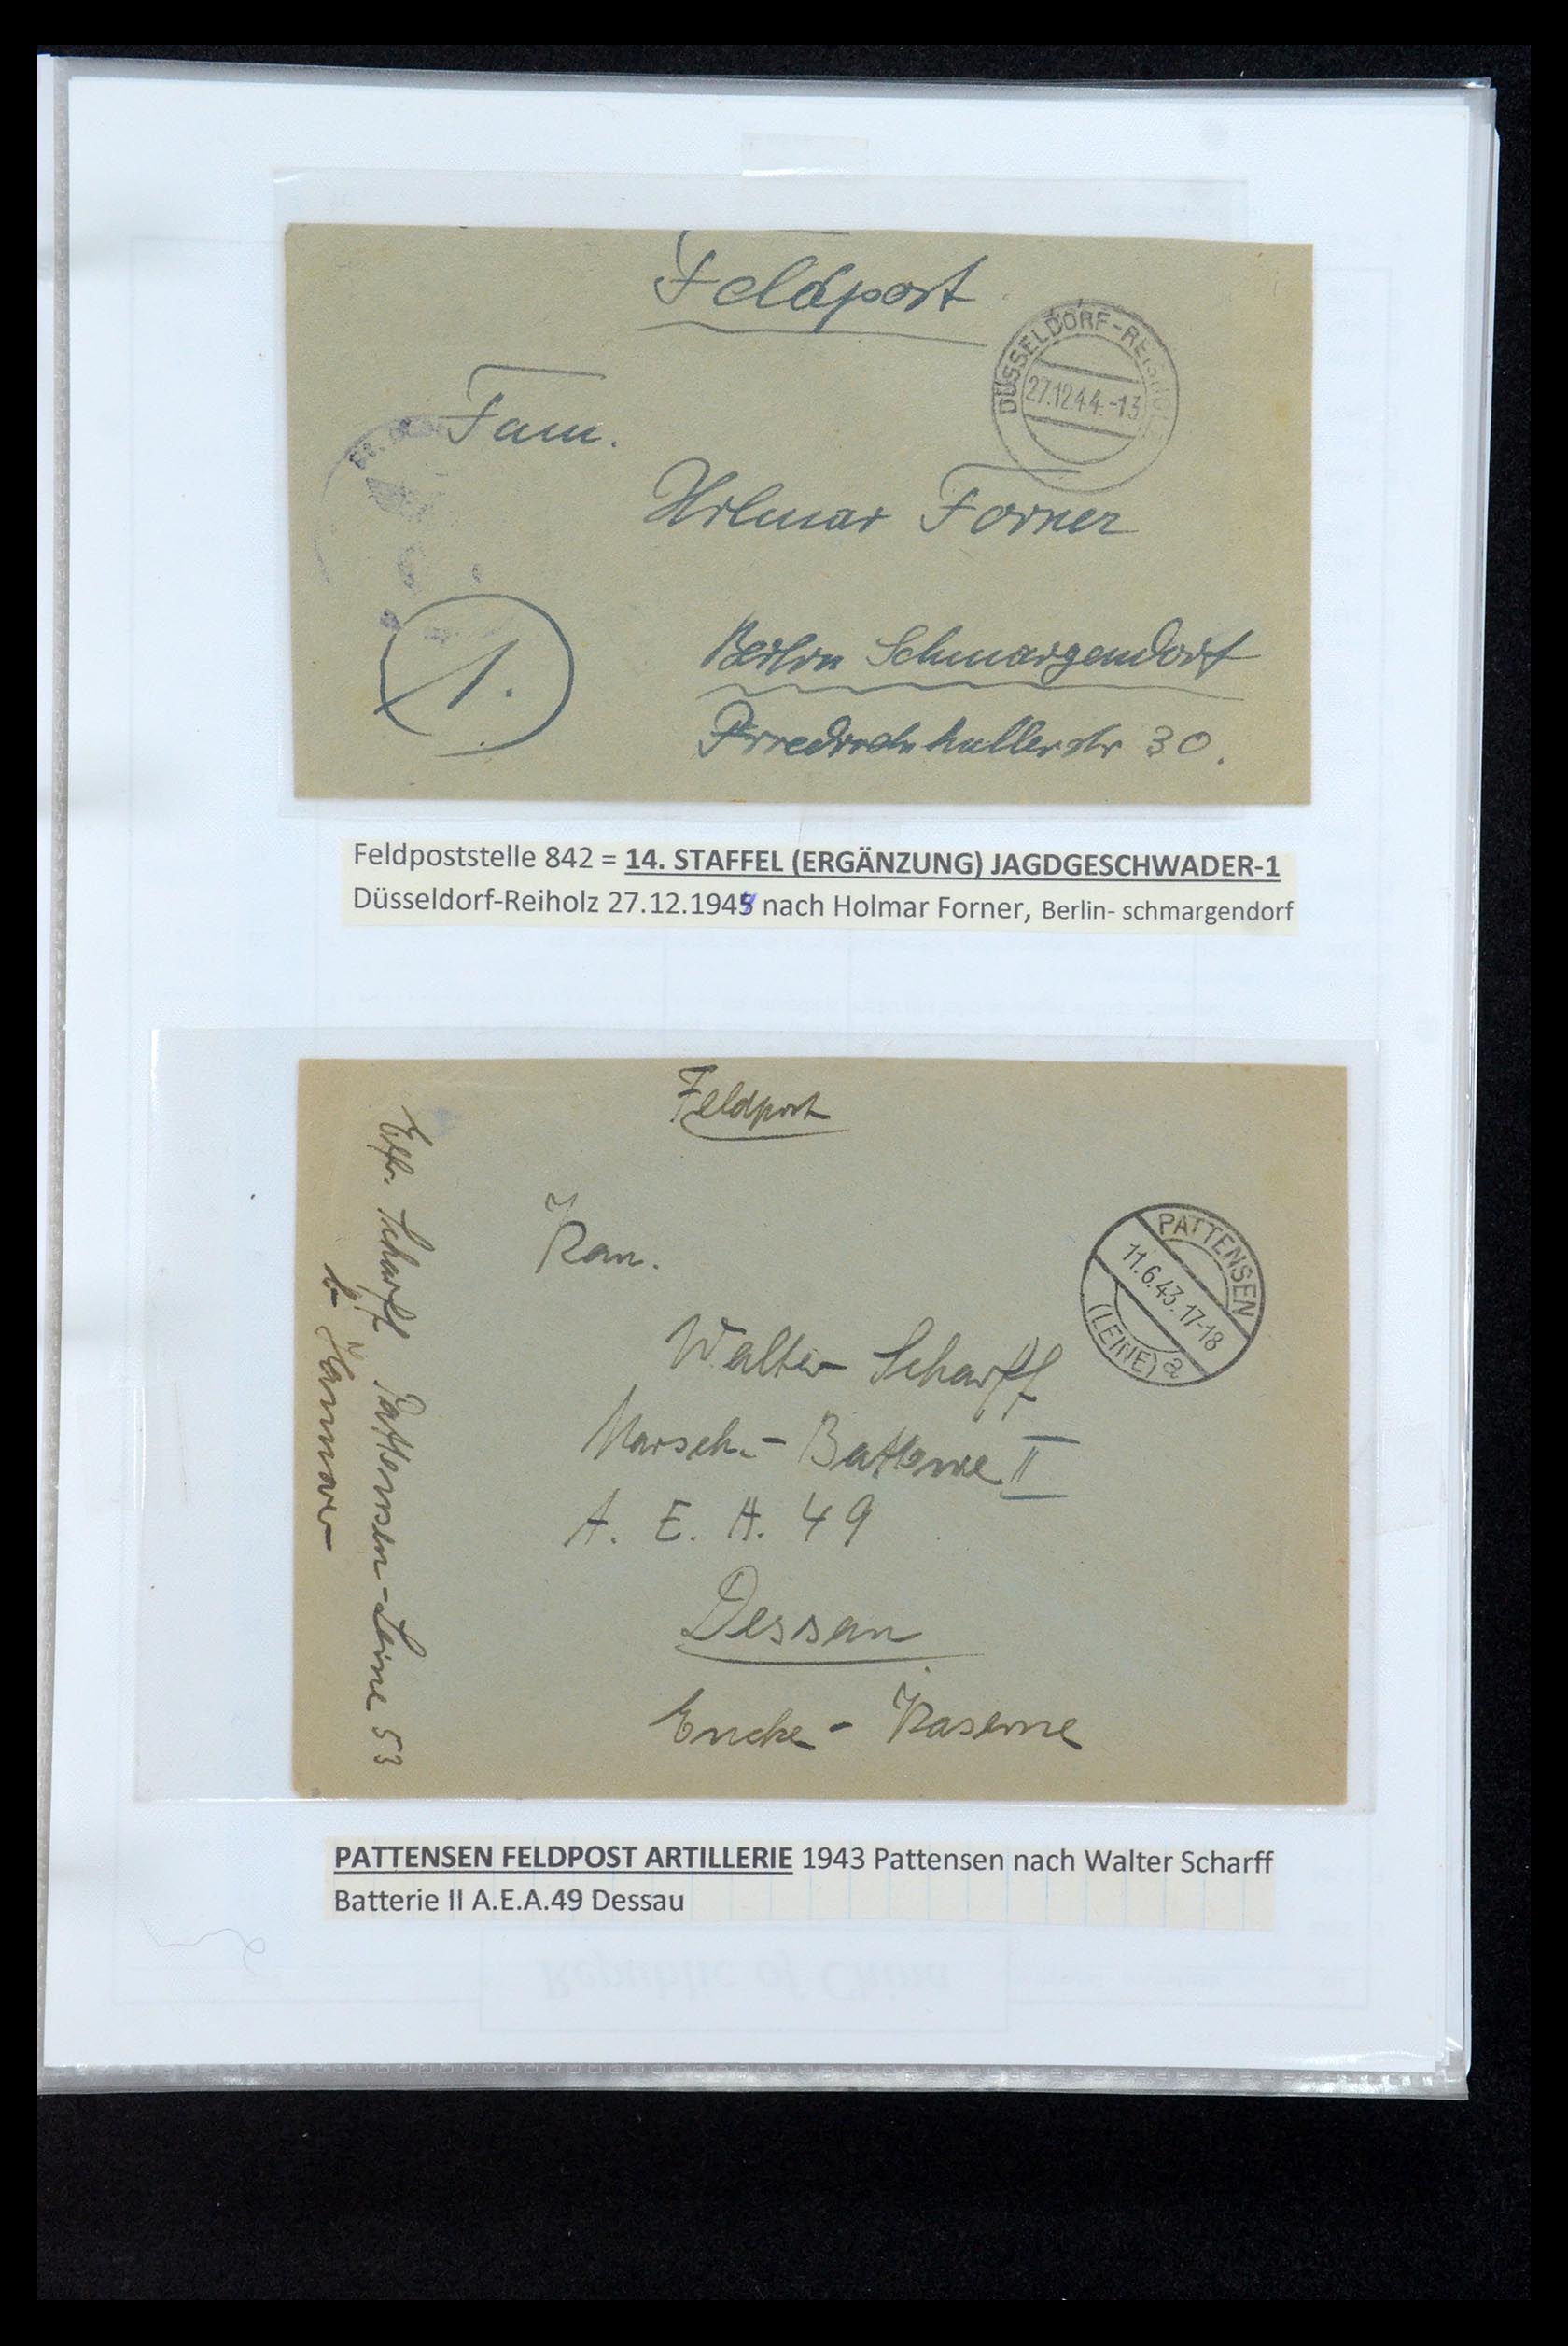 Feldpost
DÜSSELDORF-REISHOLZ
27.12.44.-13
Fam.
Hilmar Forner
1.
Berlin Schmargendorf
Friedrichshallerstr 30.
Feldpoststelle 842 = 14. STAFFEL (ERGÄNZUNG) JAGDGESCHWADER-1
Düsseldorf-Reiholz 27.12.1944 nach Holmar Forner, Berlin- schmargendorf
Feldpost
PATTENSEN
11.6.43.17-18
(LEINE) a
Kan.
Walter Scharff
Marsch.- Batterie II
A. E. A. 49
Dessau
Encke - Kaserne
Scharff Pattensen-Leine 53
b. Hannover
PATTENSEN FELDPOST ARTILLERIE 1943 Pattensen nach Walter Scharff
Batterie II A.E.A.49 Dessau
Republic of China